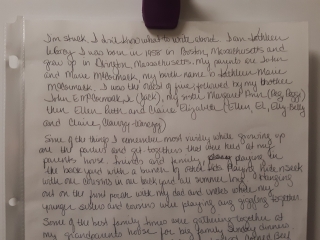 I'm stuck I don't know what to write about. I am Kathleen
I was born in 1958 in Boston, Massachusetts and
grew up in Massachusetts. My parents are John
and Marie McCormack, my birth name is Kathleen Marie
McCormack. I was the oldest of five, followed by my brother
John E. McCormack, Jr (Jack), my sister Margaret Ann (Peg, Peggy)
then Ellen Ruth and Claire Elizabeth (Ellen El, Elly Belly
and Claire,
Some of the things I remember most vividly while growing up
are the parties and get togethers that were held at my
parents house friends and family, playing in
the backyard with a bunch of other kids, Hide n Seek
with our cousins in our back yard all summer long. Hanging
out on the front porch with my dad and uncles while my
younger sisters and cousins were playing together
Some of the best family times are gathering together at
my grandparents house for big family Sunday dinners